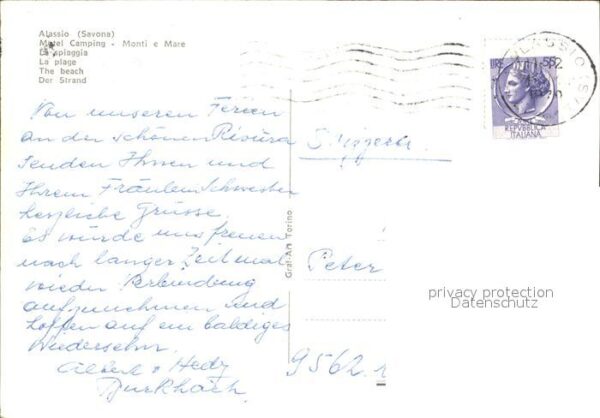 Alassio (Savona)
Motel Camping - Monti e Mare
La spiaggia
La plage
The beach
Der Strand
ALASSIO
LIRE
POSTE
REPVBBLICA
ITALIANA
Von unseren Ferien
an der schönen Riviera
senden Ihnen und
Ihrem Fräulein Schwester
herzliche Grüsse.
Es würde uns freuen
nach langer Zeit mal
wieder Verbindung
aufzunehmen und
hoffen auf ein baldiges
Wiedersehn.
Albert + Hedy
Burkhart
Graf-Art Torino
Svizzera
Peter
privacy protection
Datenschutz
9562